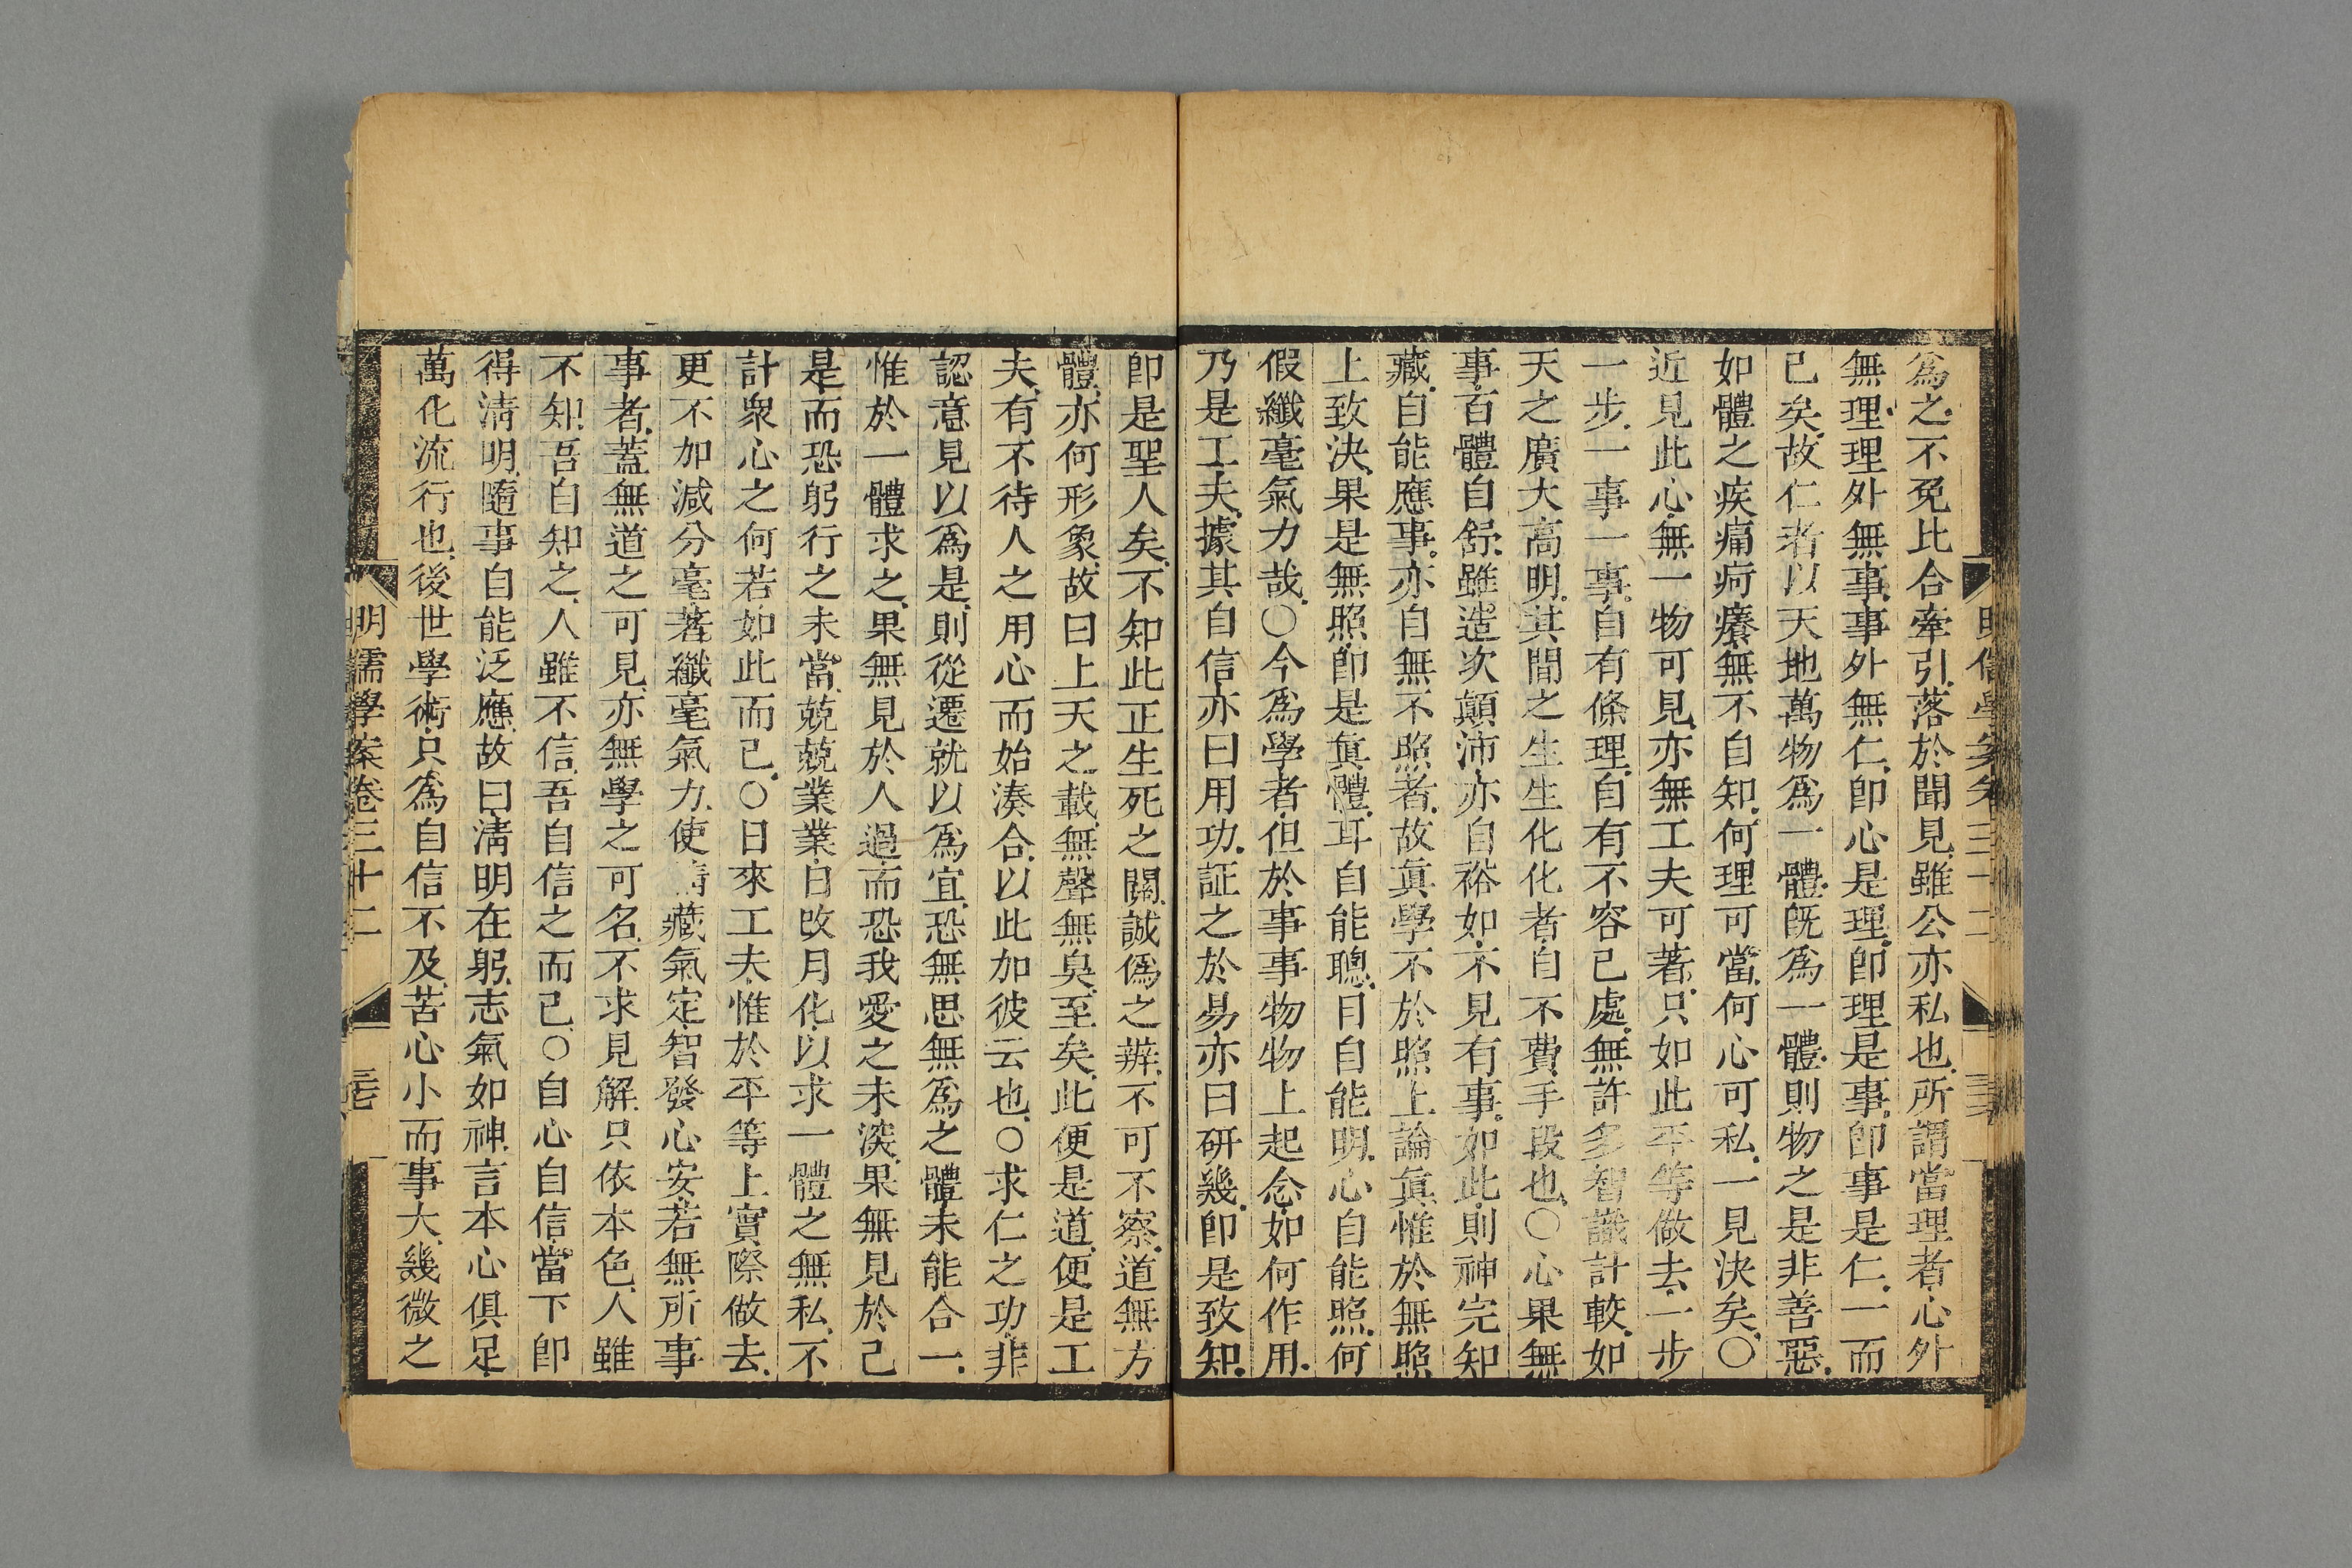 爲之不免比合牽引落於聞見雖公亦私也所謂當理者心外
無理理外無事事外無仁卽心是理卽理是事卽事是仁一而
已矣故仁者以天地萬物爲一體旣爲一體則物之是非善惡
如體之疾痛疴癢無不自知何理可當何心可私一見決矣○
近見此心無一物可見亦無工夫可著只如此平等做去一步
一步一事一事自有條理自有不容已處無許多智識計較如
天之廣大高明其間之生生化化者自不費手段也○心果無
事百體自舒雖造次顛沛亦自裕如不見有事如此則神完知
藏自能應事亦自無不照者故眞學不於照上論眞惟於無照
上致決果是無照卽是眞體耳自能聰目自能明心自能照何
假纖毫氣力哉○今爲學者但於事事物物上起念如何作用
乃是工夫據其自信亦曰用功証之於易亦曰研幾卽是致知
卽是聖人矣不知此正生死之關誠僞之辨不可不察道無方
體亦何形象故曰上天之載無聲無臭至矣此便是道便是工
夫有不待人之用心而始湊合以此加彼云也○求仁之功非
認意見以爲是則從遷就以爲宜恐無思無爲之體未能合一
惟於一體求之果無見於人過而恐我愛之未深果無見於己
是而恐躬行之未當兢兢業業日改月化以求一體之無私不
計衆心之何若如此而已○日來工夫惟於平等上實際做去
更不加減分毫著纖毫氣力使精藏氣定智發心安若無所事
事者蓋無道之可見亦無學之可名不求見解只依本色人雖
不知吾自知之人雖不信吾自信之而已○自心自信當下卽
得淸明隨事自能泛應故曰淸明在躬志氣如神言本心俱足
萬化流行也後世學術只爲自信不及苦心小而事大幾微之
明儒學案卷三十二